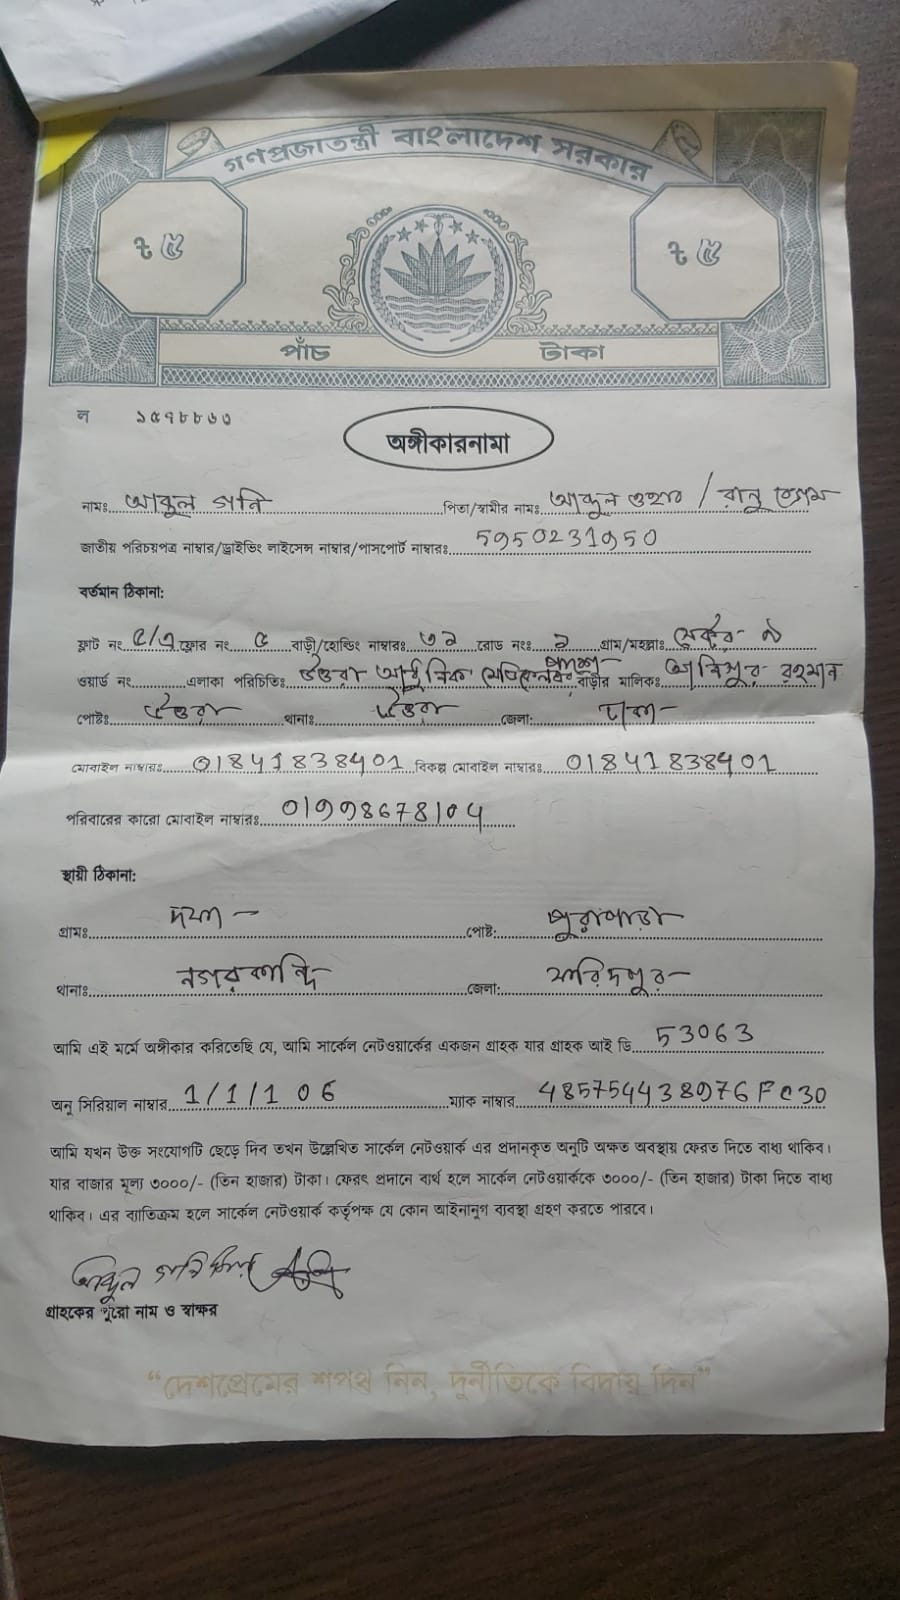 গণপ্রজাতন্ত্রী বাংলাদেশ সরকার
৳ ৫ ৳ ৫
পাঁচ টাকা
ল ১৫৭৮৮৬৩
অঙ্গীকারনামা
নামঃ আব্দুল গনি পিতা/স্বামীর নামঃ আব্দুল ওহাব / রানু বেগম
জাতীয় পরিচয়পত্র নাম্বার/ড্রাইভিং লাইসেন্স নাম্বার/পাসপোর্ট নাম্বারঃ 5950231950
বর্তমান ঠিকানা:
ফ্লাট নং ৫/এ ফ্লোর নং ৫ বাড়ী/হোল্ডিং নাম্বারঃ ৩২ রোড নংঃ ১ গ্রাম/মহল্লাঃ সেক্টর- ৯
ওয়ার্ড নং এলাকা পরিচিতিঃ উত্তরা আধুনিক মেডিকেলের পাশে বাড়ীর মালিকঃ আনিসুর রহমান
পোষ্টঃ উত্তরা থানাঃ উত্তরা জেলা: ঢাকা
মোবাইল নাম্বারঃ 01841838401 বিকল্প মোবাইল নাম্বারঃ 01841838401
পরিবারের কারো মোবাইল নাম্বারঃ 01998678104
স্থায়ী ঠিকানা:
গ্রামঃ দফা পোষ্ট: পুরাপাড়া
থানাঃ নগরকান্দি জেলা: ফরিদপুর
আমি এই মর্মে অঙ্গীকার করিতেছি যে, আমি সার্কেল নেটওয়ার্কের একজন গ্রাহক যার গ্রাহক আই ডি 53063
অনু সিরিয়াল নাম্বার 1/1/1 06 ম্যাক নাম্বার 485754438976FC30
আমি যখন উক্ত সংযোগটি ছেড়ে দিব তখন উল্লেখিত সার্কেল নেটওয়ার্ক এর প্রদানকৃত অনুটি অক্ষত অবস্থায় ফেরত দিতে বাধ্য থাকিব।
যার বাজার মূল্য ৩০০০/- (তিন হাজার) টাকা। ফেরৎ প্রদানে ব্যর্থ হলে সার্কেল নেটওয়ার্ককে ৩০০০/- (তিন হাজার) টাকা দিতে বাধ্য
থাকিব। এর ব্যতিক্রম হলে সার্কেল নেটওয়ার্ক কর্তৃপক্ষ যে কোন আইনানুগ ব্যবস্থা গ্রহণ করতে পারবে।
আব্দুল গনি
গ্রাহকের পুরো নাম ও স্বাক্ষর
“দেশপ্রেমের শপথ নিন, দুর্নীতিকে বিদায় দিন”